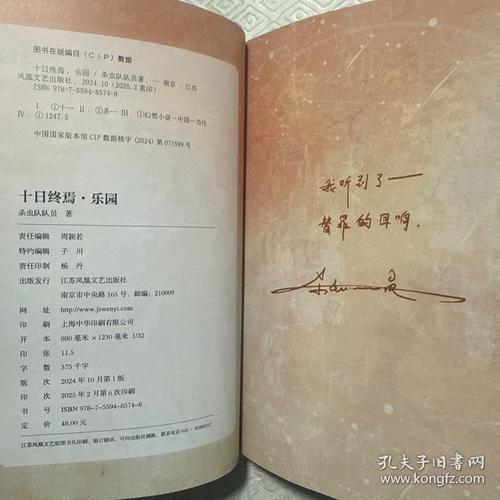 图书在版编目（CIP）数据
十日终焉．乐园 / 杀虫队队员著．-- 南京：江苏
凤凰文艺出版社，2024.10（2025.2重印）
ISBN 978-7-5594-8574-8
Ⅰ．①十… Ⅱ．①杀… Ⅲ．①幻想小说－中国－当代
Ⅳ．①I247.5
中国国家版本馆CIP数据核字（2024）第071599号
十日终焉·乐园
杀虫队队员 著
责任编辑 周颖若
特约编辑 子川
责任印制 杨丹
出版发行 江苏凤凰文艺出版社
南京市中央路165号，邮编：210009
网址 http://www.jswenyi.com
印刷 上海中华印刷有限公司
开本 880毫米×1230毫米 1/32
印张 11.5
字数 375千字
版次 2024年10月第1版
印次 2025年2月第6次印刷
书号 ISBN 978-7-5594-8574-8
定价 48.00元
江苏凤凰文艺版图书凡印刷、装订错误，可向出版社调换，联系电话
我听到了——
替罪的回响．
孔夫子旧书网
www.kongfz.com